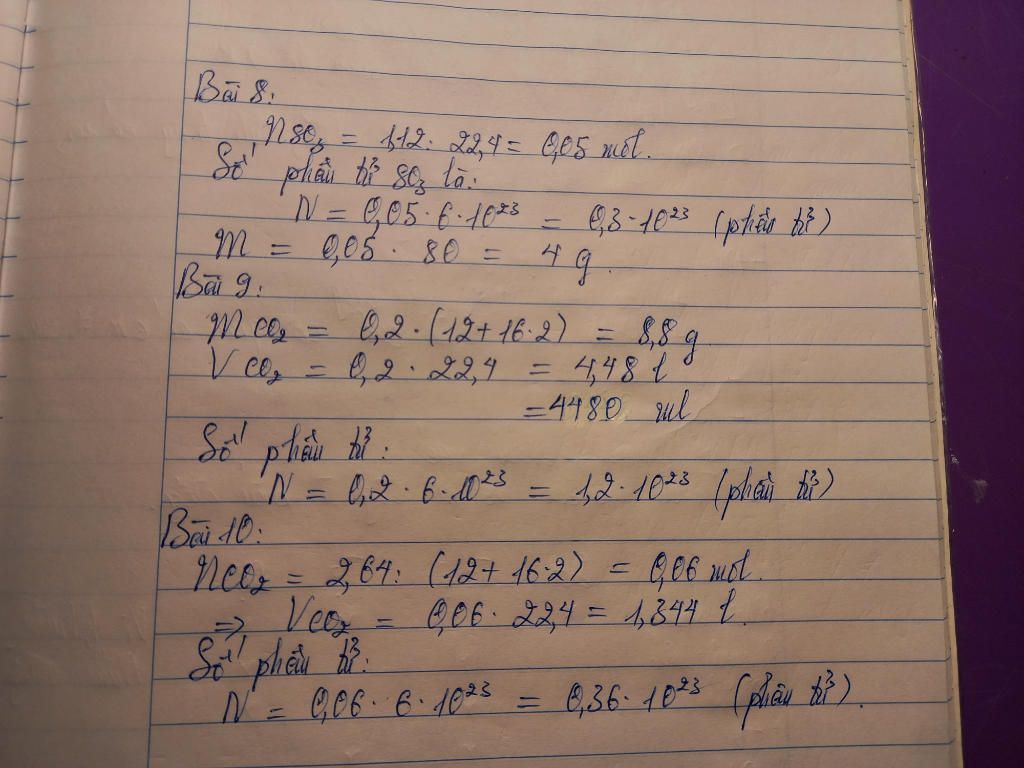 Bài 8:
nSO₃ = 1,12 : 22,4 = 0,05 mol.
Số phân tử SO₃ là:
N = 0,05 · 6 · 10²³ = 0,3 · 10²³ (phân tử)
M = 0,05 · 80 = 4 g.
Bài 9:
MCO₂ = 0,2 · (12 + 16 · 2) = 8,8 g
VCO₂ = 0,2 · 22,4 = 4,48 l
= 4480 ml
Số phân tử:
N = 0,2 · 6 · 10²³ = 1,2 · 10²³ (phân tử)
Bài 10:
nCO₂ = 2,64 : (12 + 16 · 2) = 0,06 mol.
⇒ VCO₂ = 0,06 · 22,4 = 1,344 l.
Số phân tử:
N = 0,06 · 6 · 10²³ = 0,36 · 10²³ (phân tử).